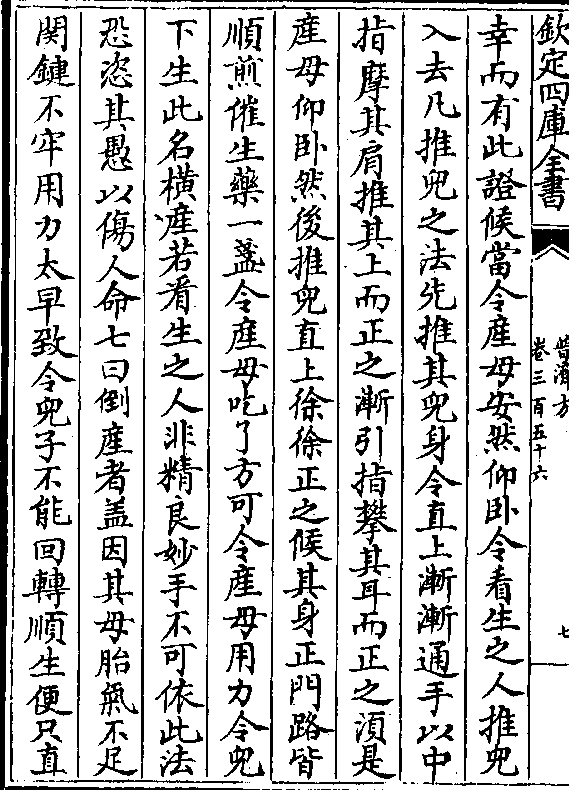 欽定四庫全書
普濟方
卷三百五十六
七
幸而有此證候當令産母安然仰卧令看生之人推兒
入去凡推兒之法先推其兒身令直上漸漸通手以中
指摩其肩推其上而正之漸引指攀其耳而正之湏是
産母仰卧然後推兒直上徐徐正之候其身正門路皆
順煎催生藥一盞令産母吃了方可令産母用力令兒
下生此名橫産若看生之人非精良妙手不可依此法
恐恣其愚以傷人命七曰倒産者盖因其母胎氣不足
関鍵不牢用力太早致令兒子不能回轉順生便只直